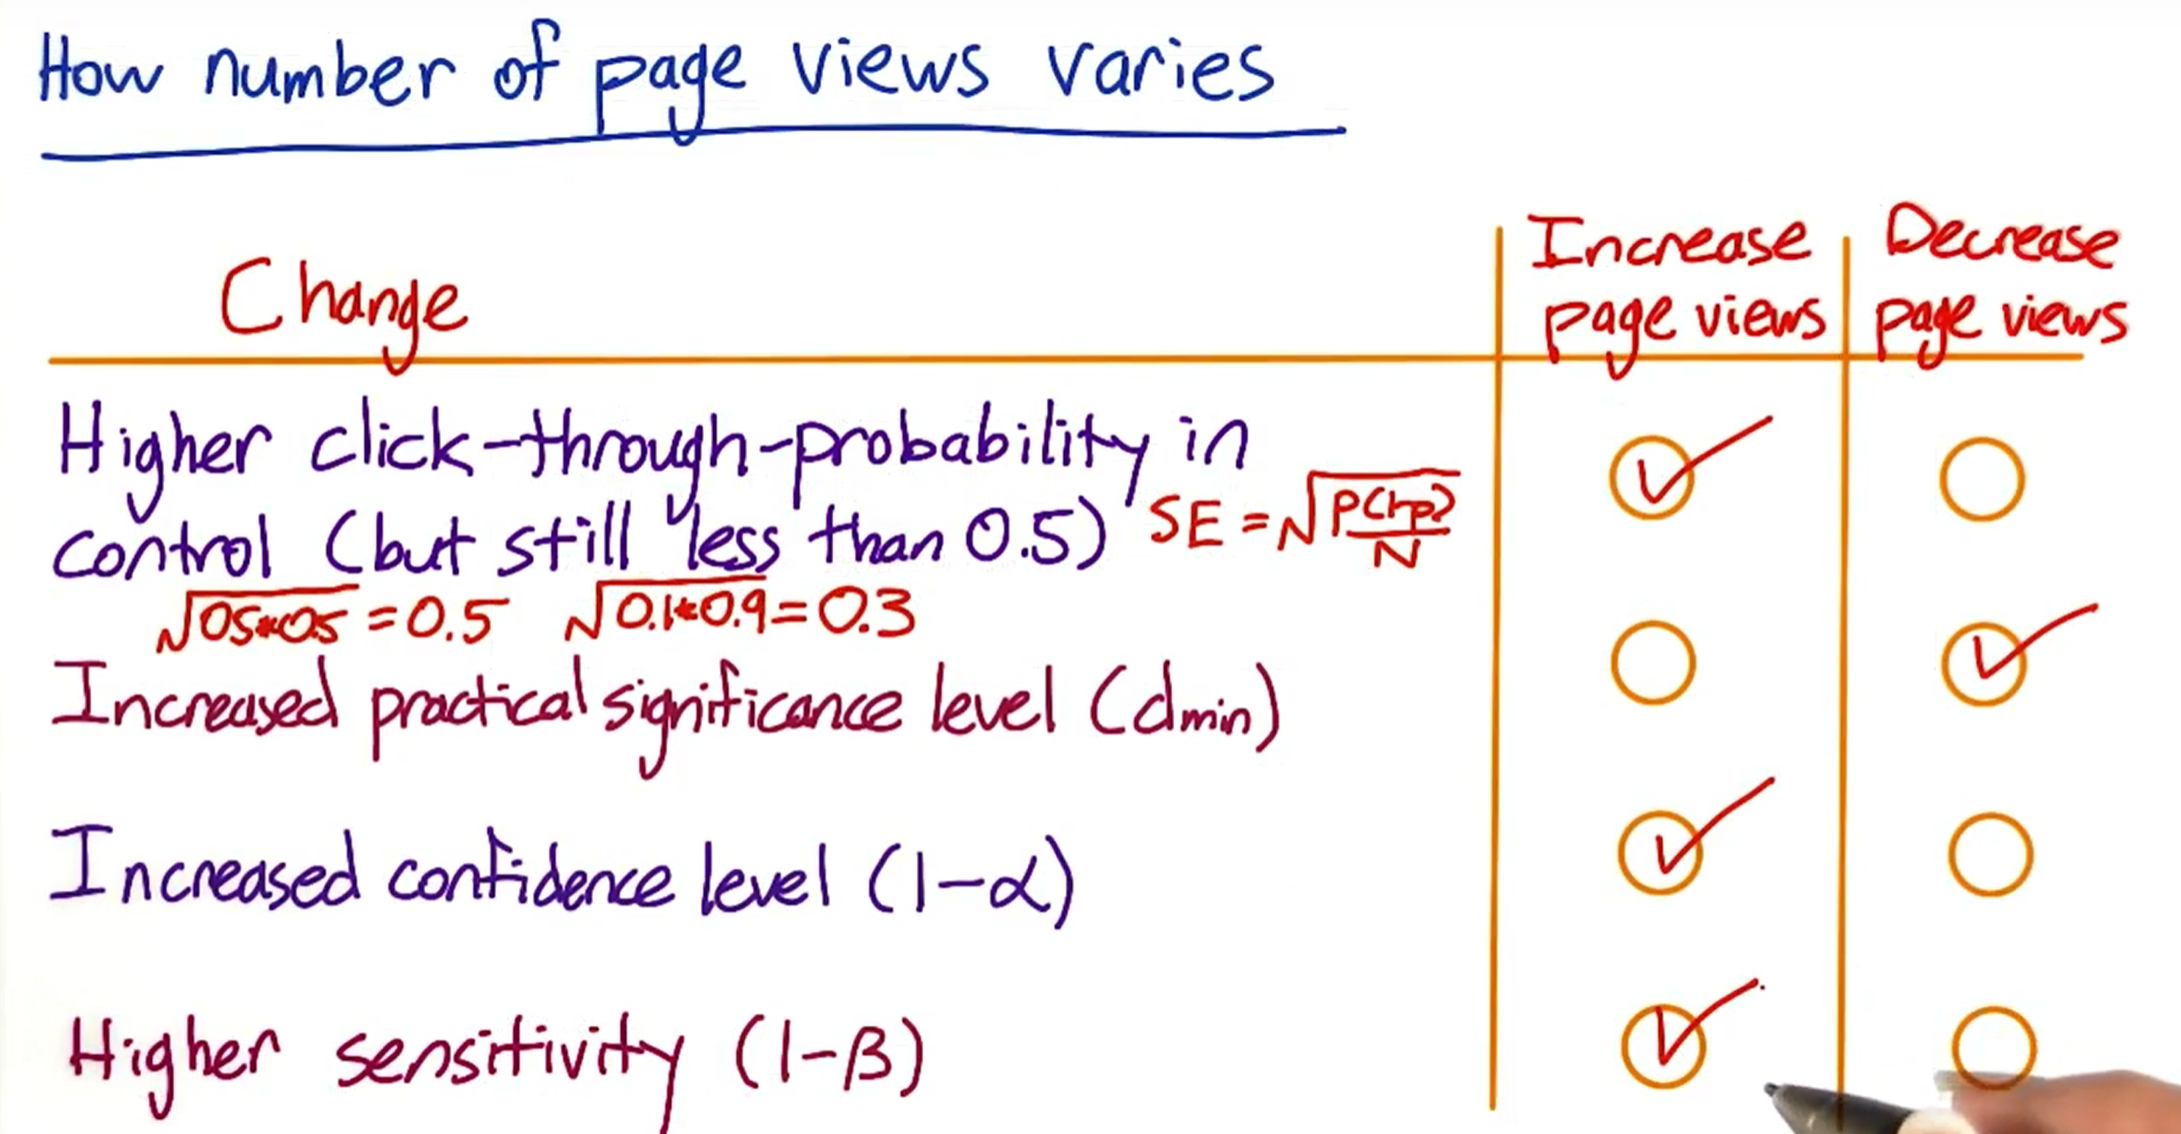 How number of page views varies
Change
Increase page views
Decrease page views
Higher click-through-probability in
control (but still less than 0.5) SE = √P(1-p)/N
√0.5*0.5 = 0.5 √0.1*0.9 = 0.3
Increased practical significance level (dmin)
Increased confidence level (1-α)
Higher sensitivity (1-β)